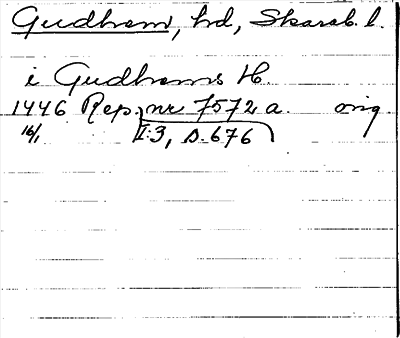 Gudhem, hd, Skarab. l.
i Gudhems H.
1446 Rep. nr 7572 a. orig
16/1 I:3, S. 676